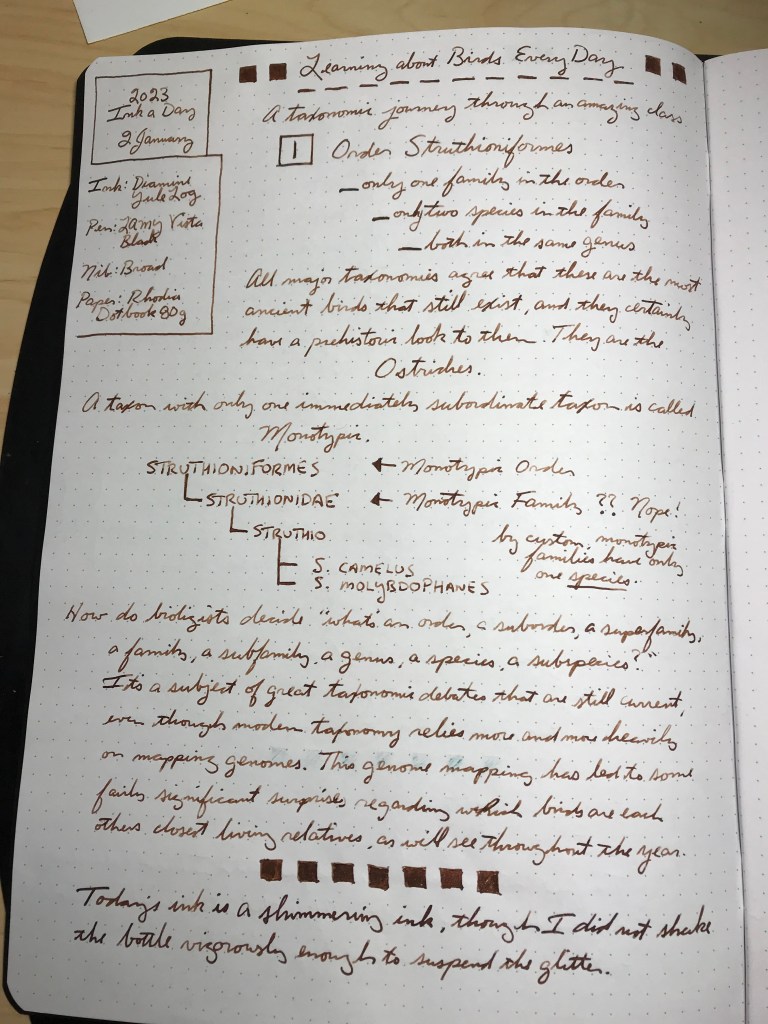 Learning about Birds Every Day
2023
Ink a Day
2 January
A taxonomic journey through an amazing class
1 Order Struthioniformes
– only one family in the order
– only two species in the family
– both in the same genus
Ink: Diamine
Yule Log
Pen: LAMY Vista
Black
Nib: Broad
Paper: Rhodia
Dotbook 80g
All major taxonomies agree that these are the most
ancient birds that still exist, and they certainly
have a prehistoric look to them. They are the
Ostriches.
A taxon with only one immediately subordinate taxon is called
Monotypic.
STRUTHIONIFORMES ← Monotypic Order
STRUTHIONIDAE ← Monotypic Family ?? Nope!
STRUTHIO
by custom, monotypic
families have only
one species.
S. CAMELUS
S. MOLYBDOPHANES
How do bioligists decide "what's an order, a suborder, a superfamily,
a family, a subfamily, a genus, a species, a subspecies?"
It's a subject of great taxonomic debates that are still current,
even though modern taxonomy relies more and more heavily
on mapping genomes. This genome mapping has led to some
fairly significant surprises regarding which birds are each
others closest living relatives, as will see throughout the year.
Todays ink is a shimmering ink, though I did not shake
the bottle vigorously enough to suspend the glitter.